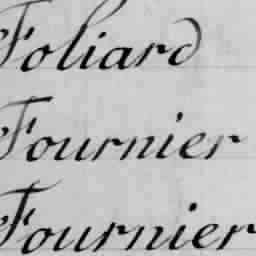 Foliard
Fournier
Fournier